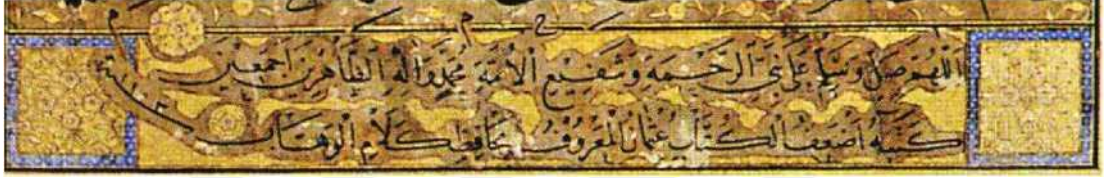 اللهم صل وسلم على نبي الرحمة وشفيع الأمة محمد وآله الطاهرين أجمعين
كتبه أضعف الكتاب عثمان المعروف بحافظ كلام الوهاب